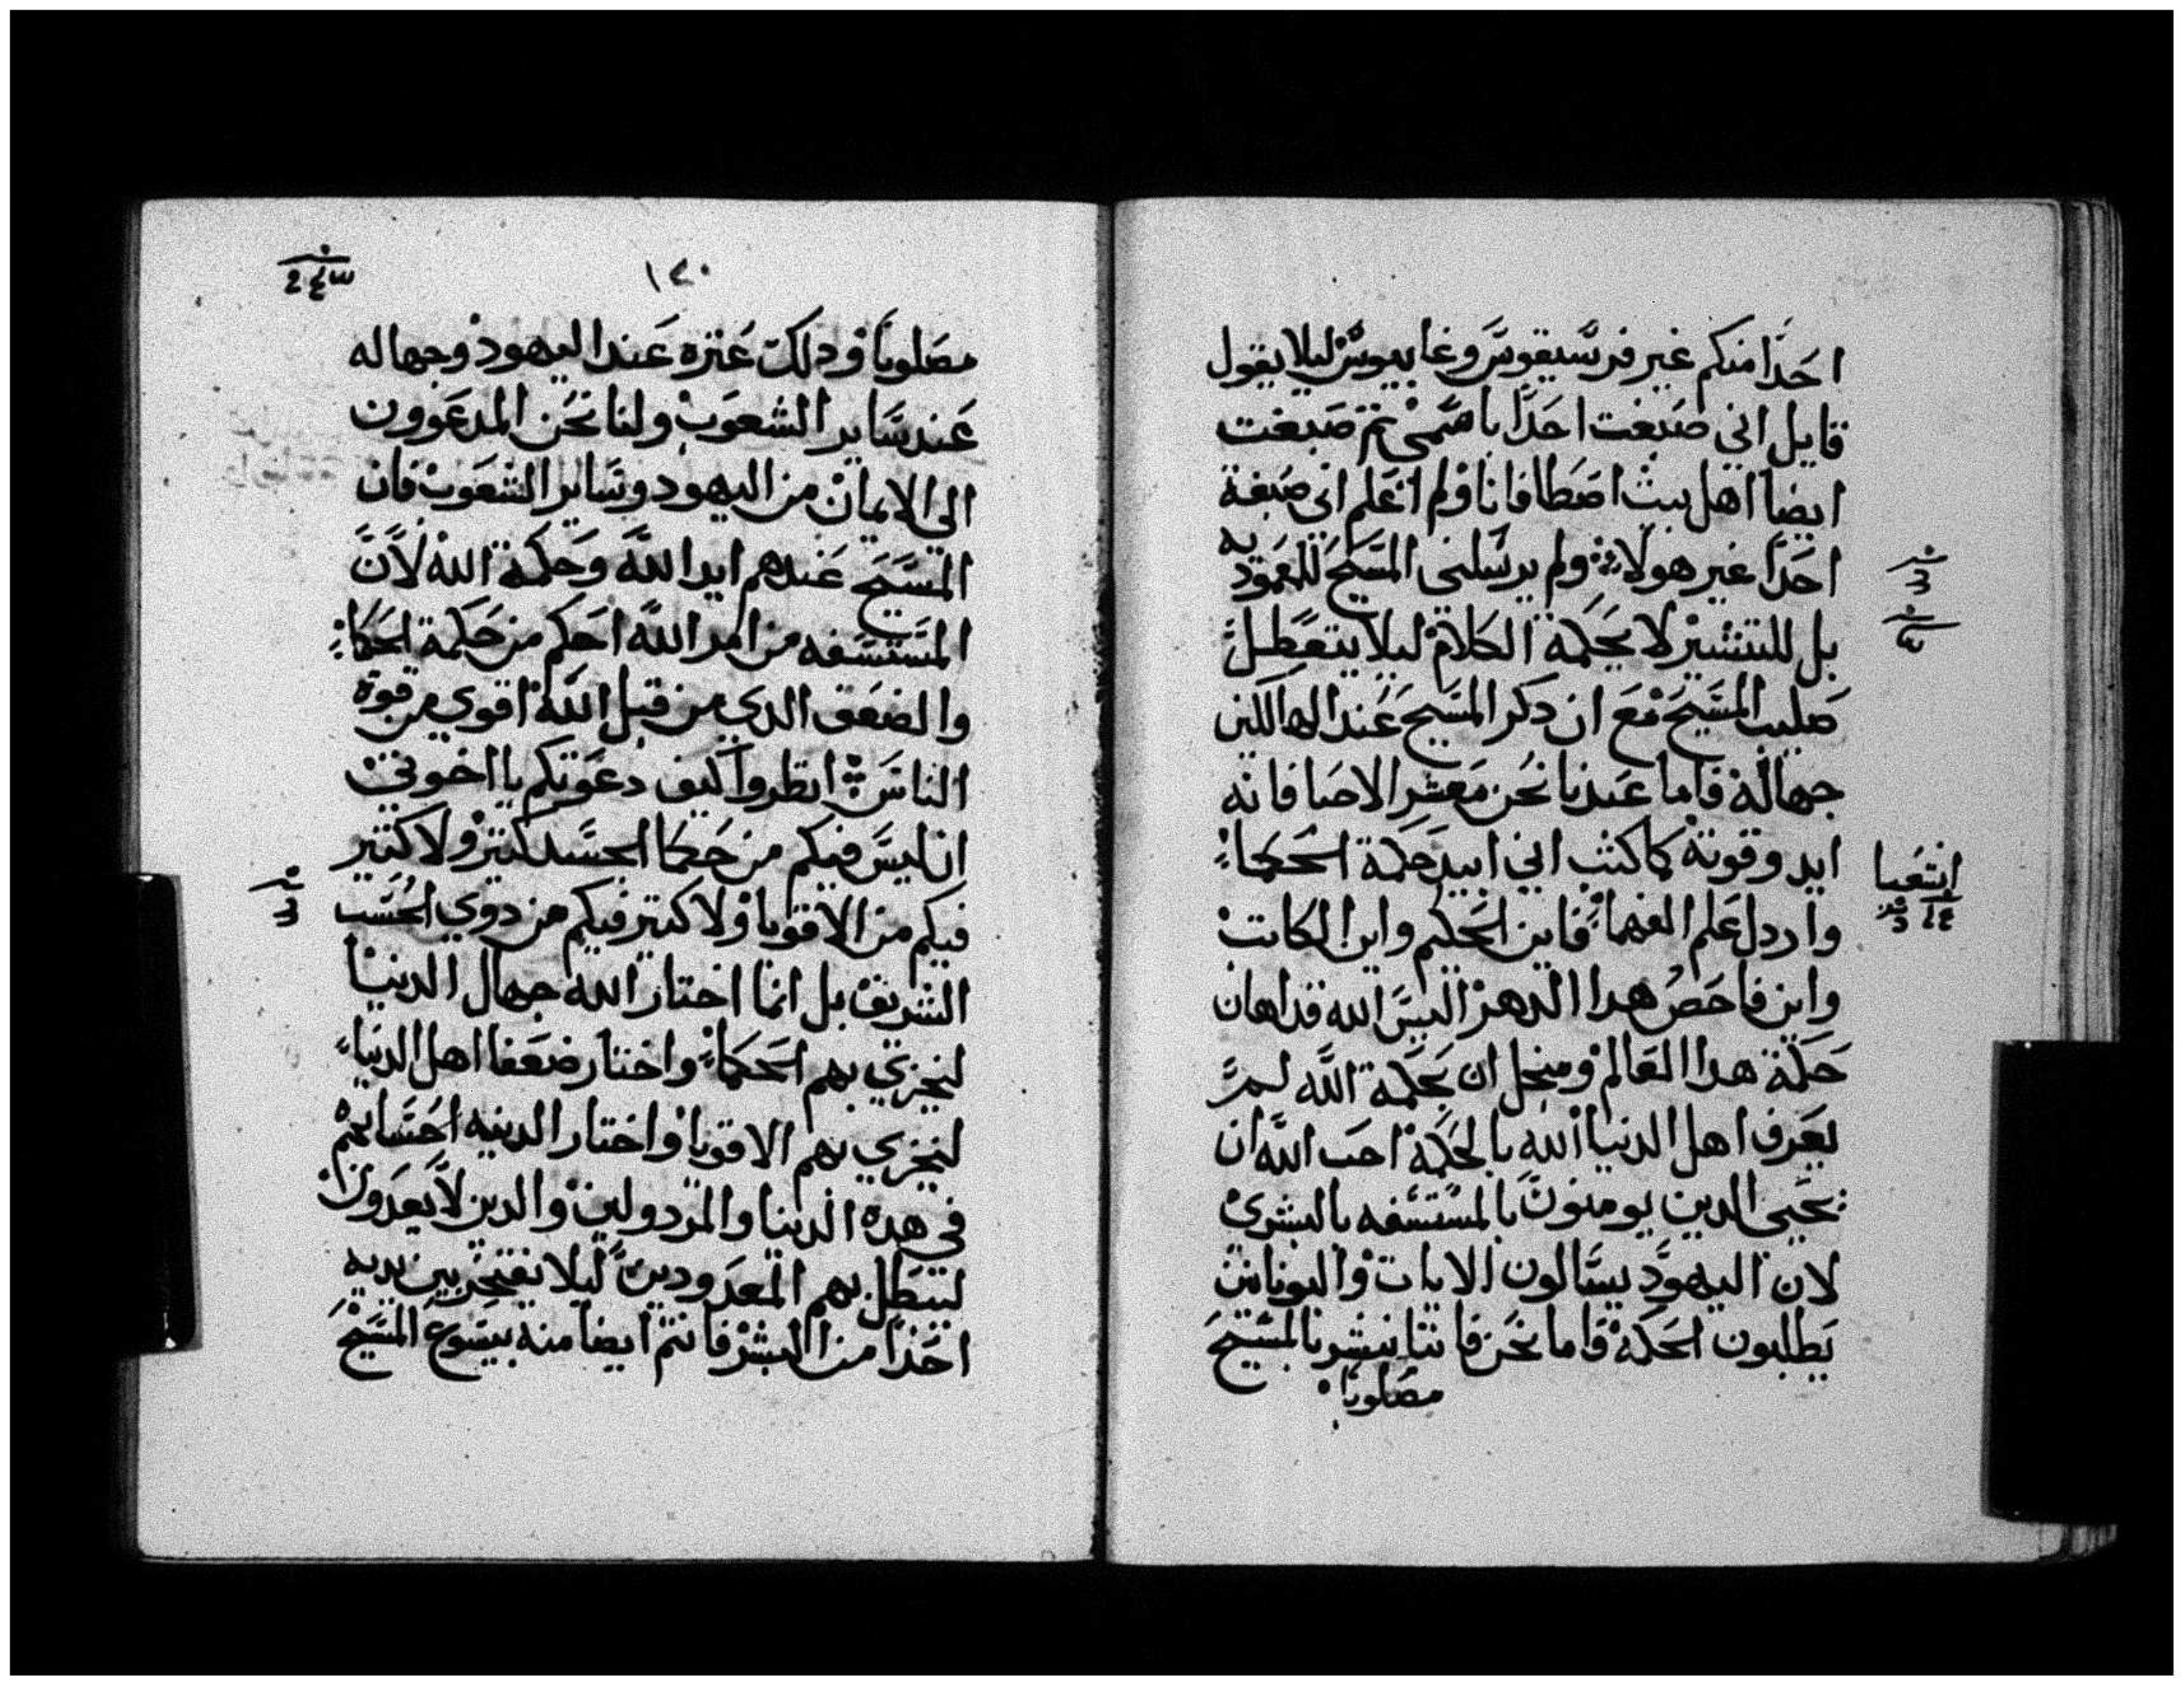 احدا منكم غير فرسيقوس وغابيوس ليلا يقول
قايل اني صبغت احدا باسمي ثم صبغت
ايضا اهل بيت اصطافانا ولم اعلم اني صبغة
احدا غير هولاء ولم يرسلني المسيح للعموديه
بل للتبشير لا بحكمة الكلام ليلا يتعطل
صليب المسيح مع ان دكر المسيح عند الهالكين
جهالة فاما عندنا نحن معشر الاحيا فانه
ايد وقوتة كما كتب اني ابيد حكمة الحكماء
واردل علم الفهماء فاين الحكيم واين الكاتب
واين فاحص هدا الدهر اليس الله قد اهان
حكمة هدا العالم ومنجل ان بحكمة الله لم
يعرف اهل الدنيا الله بالحكمة احب الله ان
يحيي الدين يومنون بالمستسفه بالبشرى
لان اليهود يسالون الايات واليونانيين
يطلبون الحكمة فاما نحن فاننا نبشر بالمسيح
مصلوبا
اشعيا
١٢٠
مصلوبا ودلك عتره عند اليهود وجهاله
عند ساير الشعوب ولنا نحن المدعوون
الي الايمان من اليهود وساير الشعوب فان
المسيح عندهم ايد الله وحكمة الله لان
المستسفه من امر الله احكم من حكمة الحكماء
والضعف الدي من قبل الله اقوي من قوة
الناس انظروا كيف دعوتكم يا اخوتي
انا ليس فيكم من حكما الجسد كتير ولا كتير
فيكم من الاقويا ولا كتير فيكم من دوي الحسب
الشريف بل انما اختار الله جهال الدنيا
ليخزي بهم الحكماء واختار ضعفا اهل الدنياء
ليخزي بهم الاقويا واختار الدنيه احسابهم
في هده الدينا والمردولين والدين لا يعدون
ليبطل بهم المعدودين ليلا يفتخر بين يديه
احدا من البشر فانتم ايضا منه بيسوع المسيح